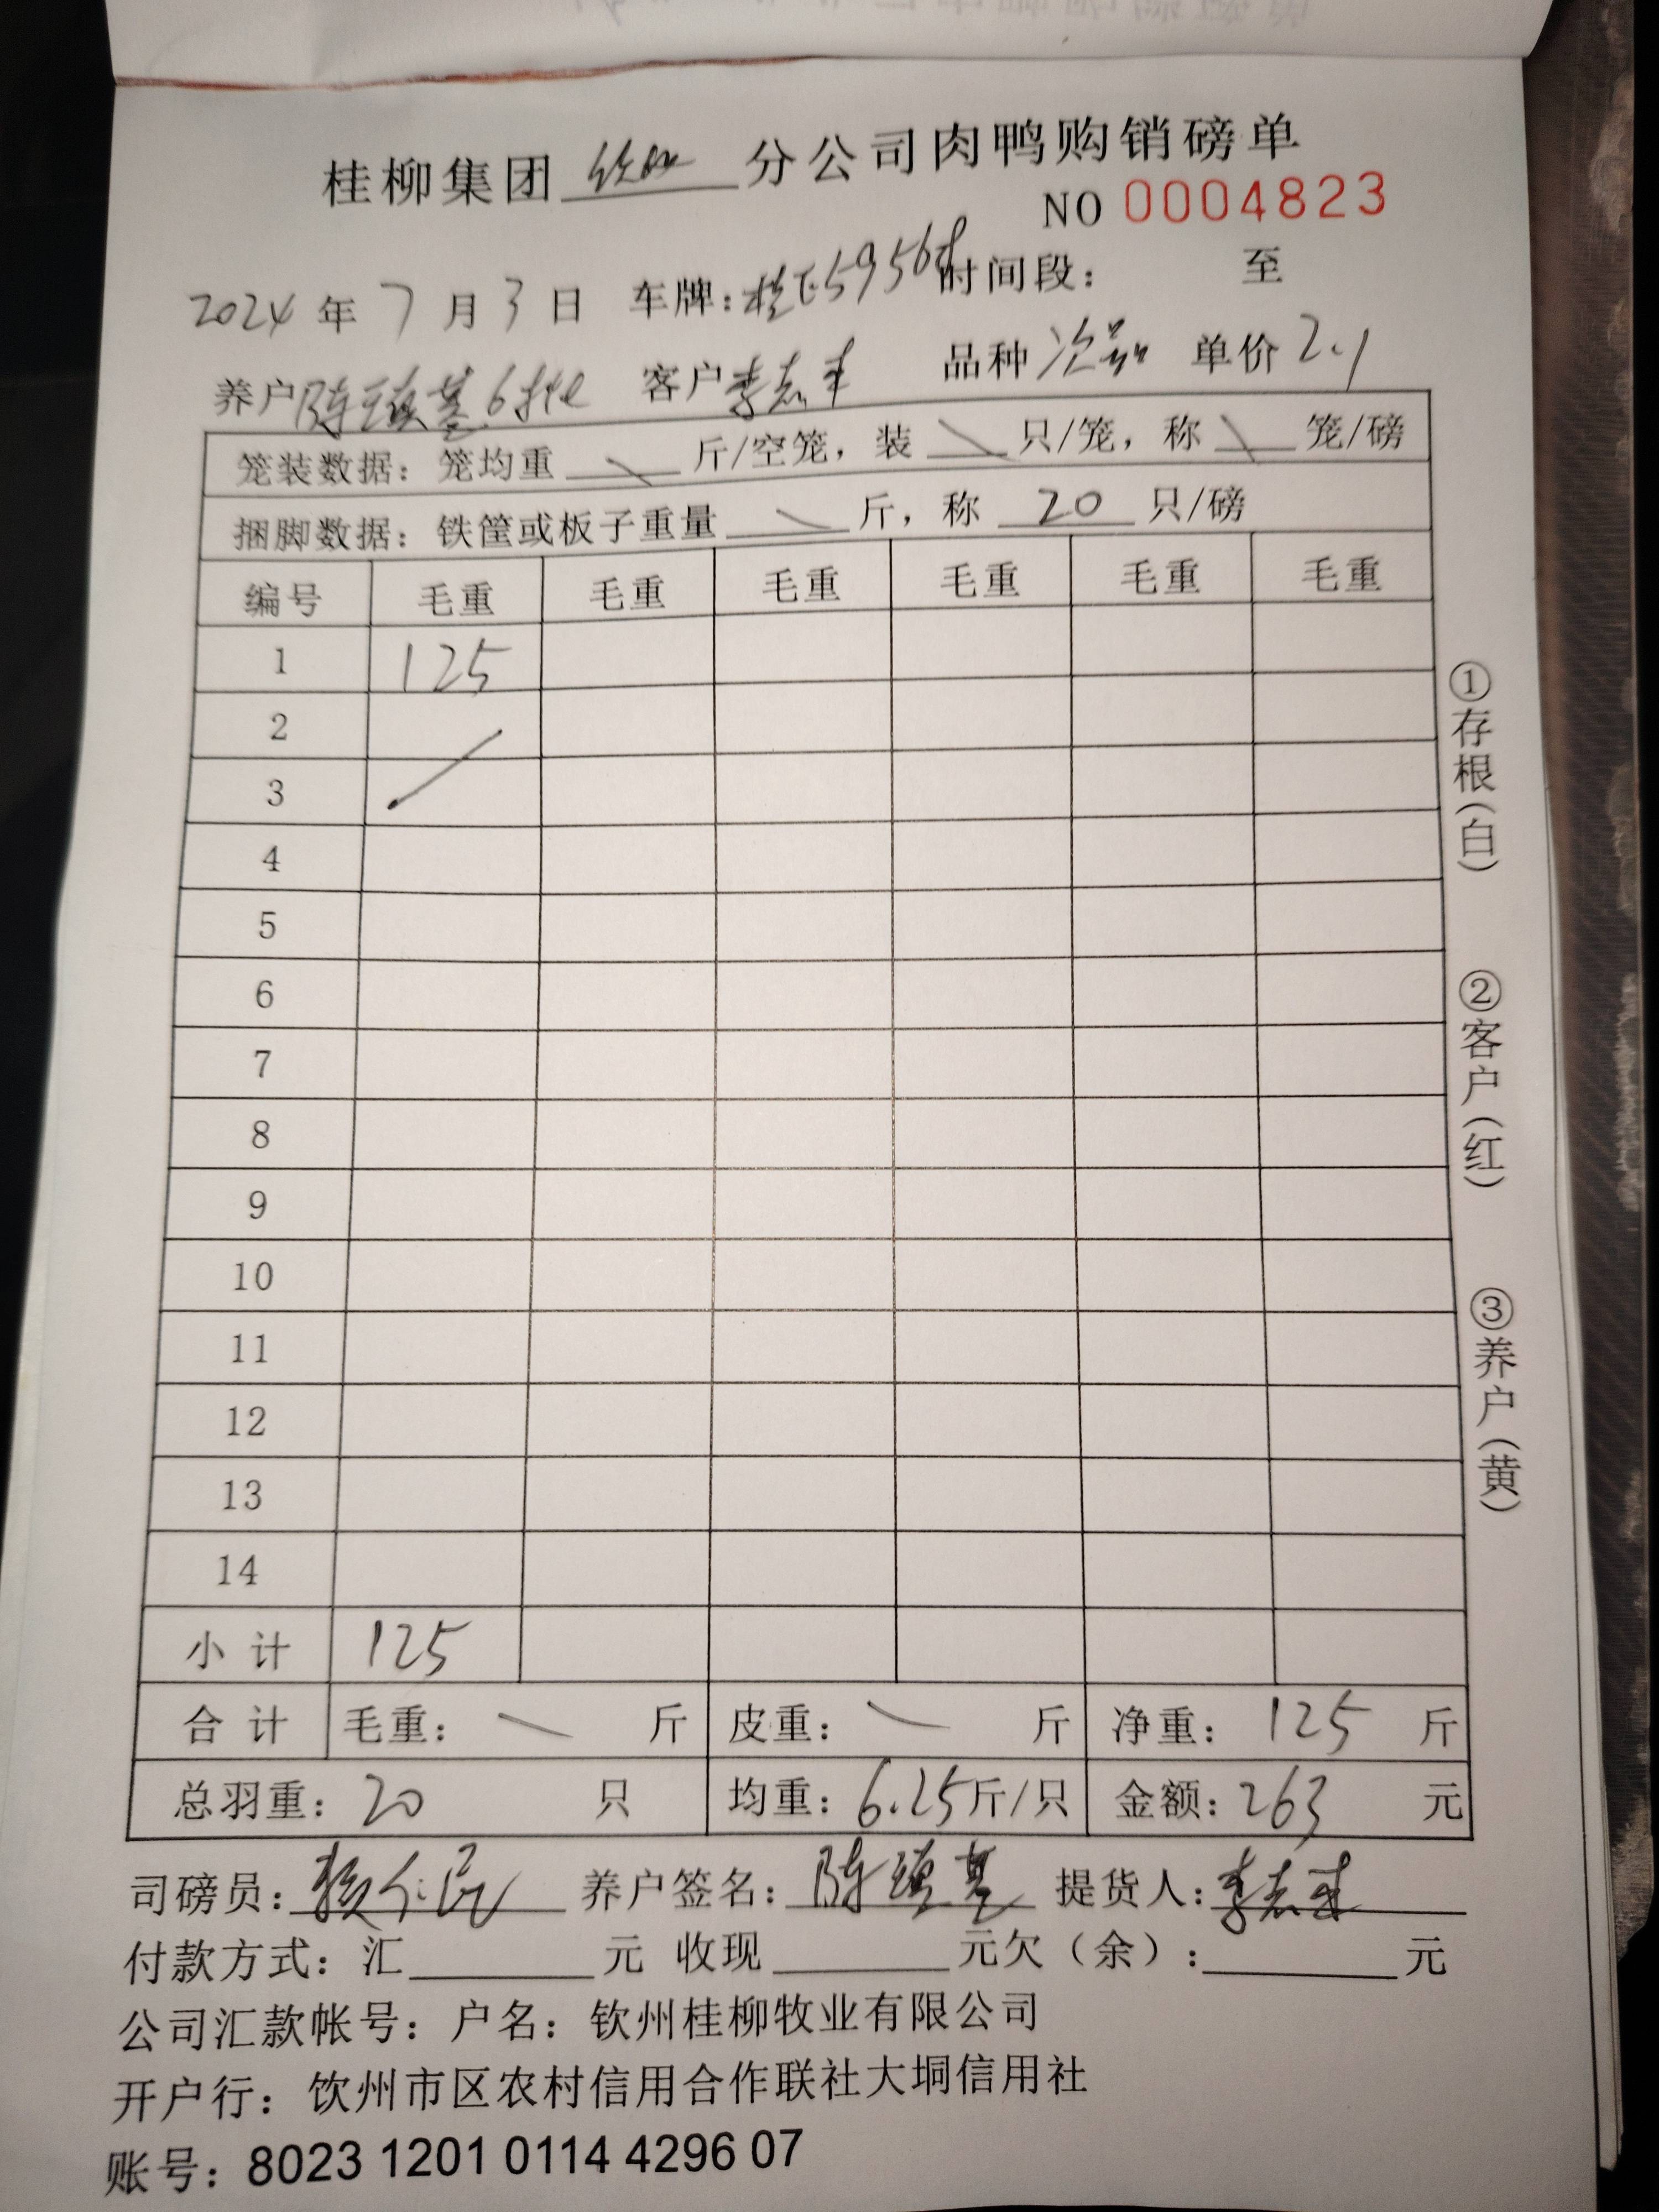 桂柳集团 钦州 分公司肉鸭购销磅单
NO 0004823
2024 年 7 月 3 日 车牌: 时间段: 至
养户 陈 基 6批 客户 李志 品种 次品 单价 2.1
笼装数据: 笼均重 斤/空笼, 装 只/笼, 称 笼/磅
捆脚数据: 铁筐或板子重量 斤, 称 20 只/磅
编号 毛重 毛重 毛重 毛重 毛重 毛重
1 125
2
3
4
5
6
7
8
9
10
11
12
13
14
小计 125
合计 毛重: 斤 皮重: 斤 净重: 125 斤
总羽重: 20 只 均重: 6.25斤/只 金额: 263 元
司磅员: 养户签名: 陈 基 提货人: 李志
付款方式: 汇 元 收现 元欠(余): 元
公司汇款帐号: 户名: 钦州桂柳牧业有限公司
开户行: 饮州市区农村信用合作联社大垌信用社
账号: 8023 1201 0114 4296 07
①存根(白)
②客户(红)
③养户(黄)